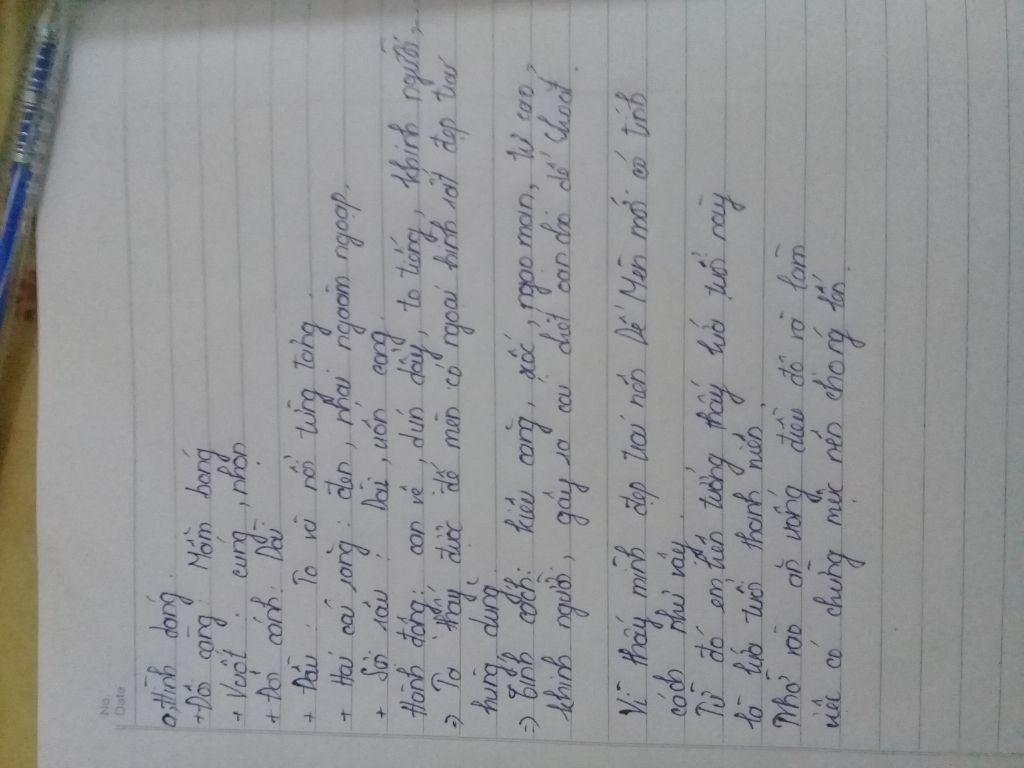 No.
Date
a, Hình dáng
+ Đôi càng: Mẫm bóng
+ Vuốt: cứng, nhọn
+ Đôi cánh: Dài
+ Đầu: To và nổi từng tảng
+ Hai cái răng: đen, nhai ngoàm ngoạp.
+ Sợi râu: Dài, uốn cong
Hành động: cà vẻ, dún dẩy, to tiếng, khinh người,
=> Ta thấy được dế mèn có ngoại hình rất đẹp trai
hùng dung
=> Tính cách: kiêu căng, xốc, ngạo mạn, tự cao,
khinh người, gây ra cái chết oan cho dế Choắt
Vì thấy mình đẹp trai nên Dế Mèn mới có tính
cách như vậy
Từ đó em liên tưởng thấy lứa tuổi này
là lứa tuổi thanh niên
Nhà rào ăn uống điều độ và làm
việc có chừng mực nên chóng lớn.